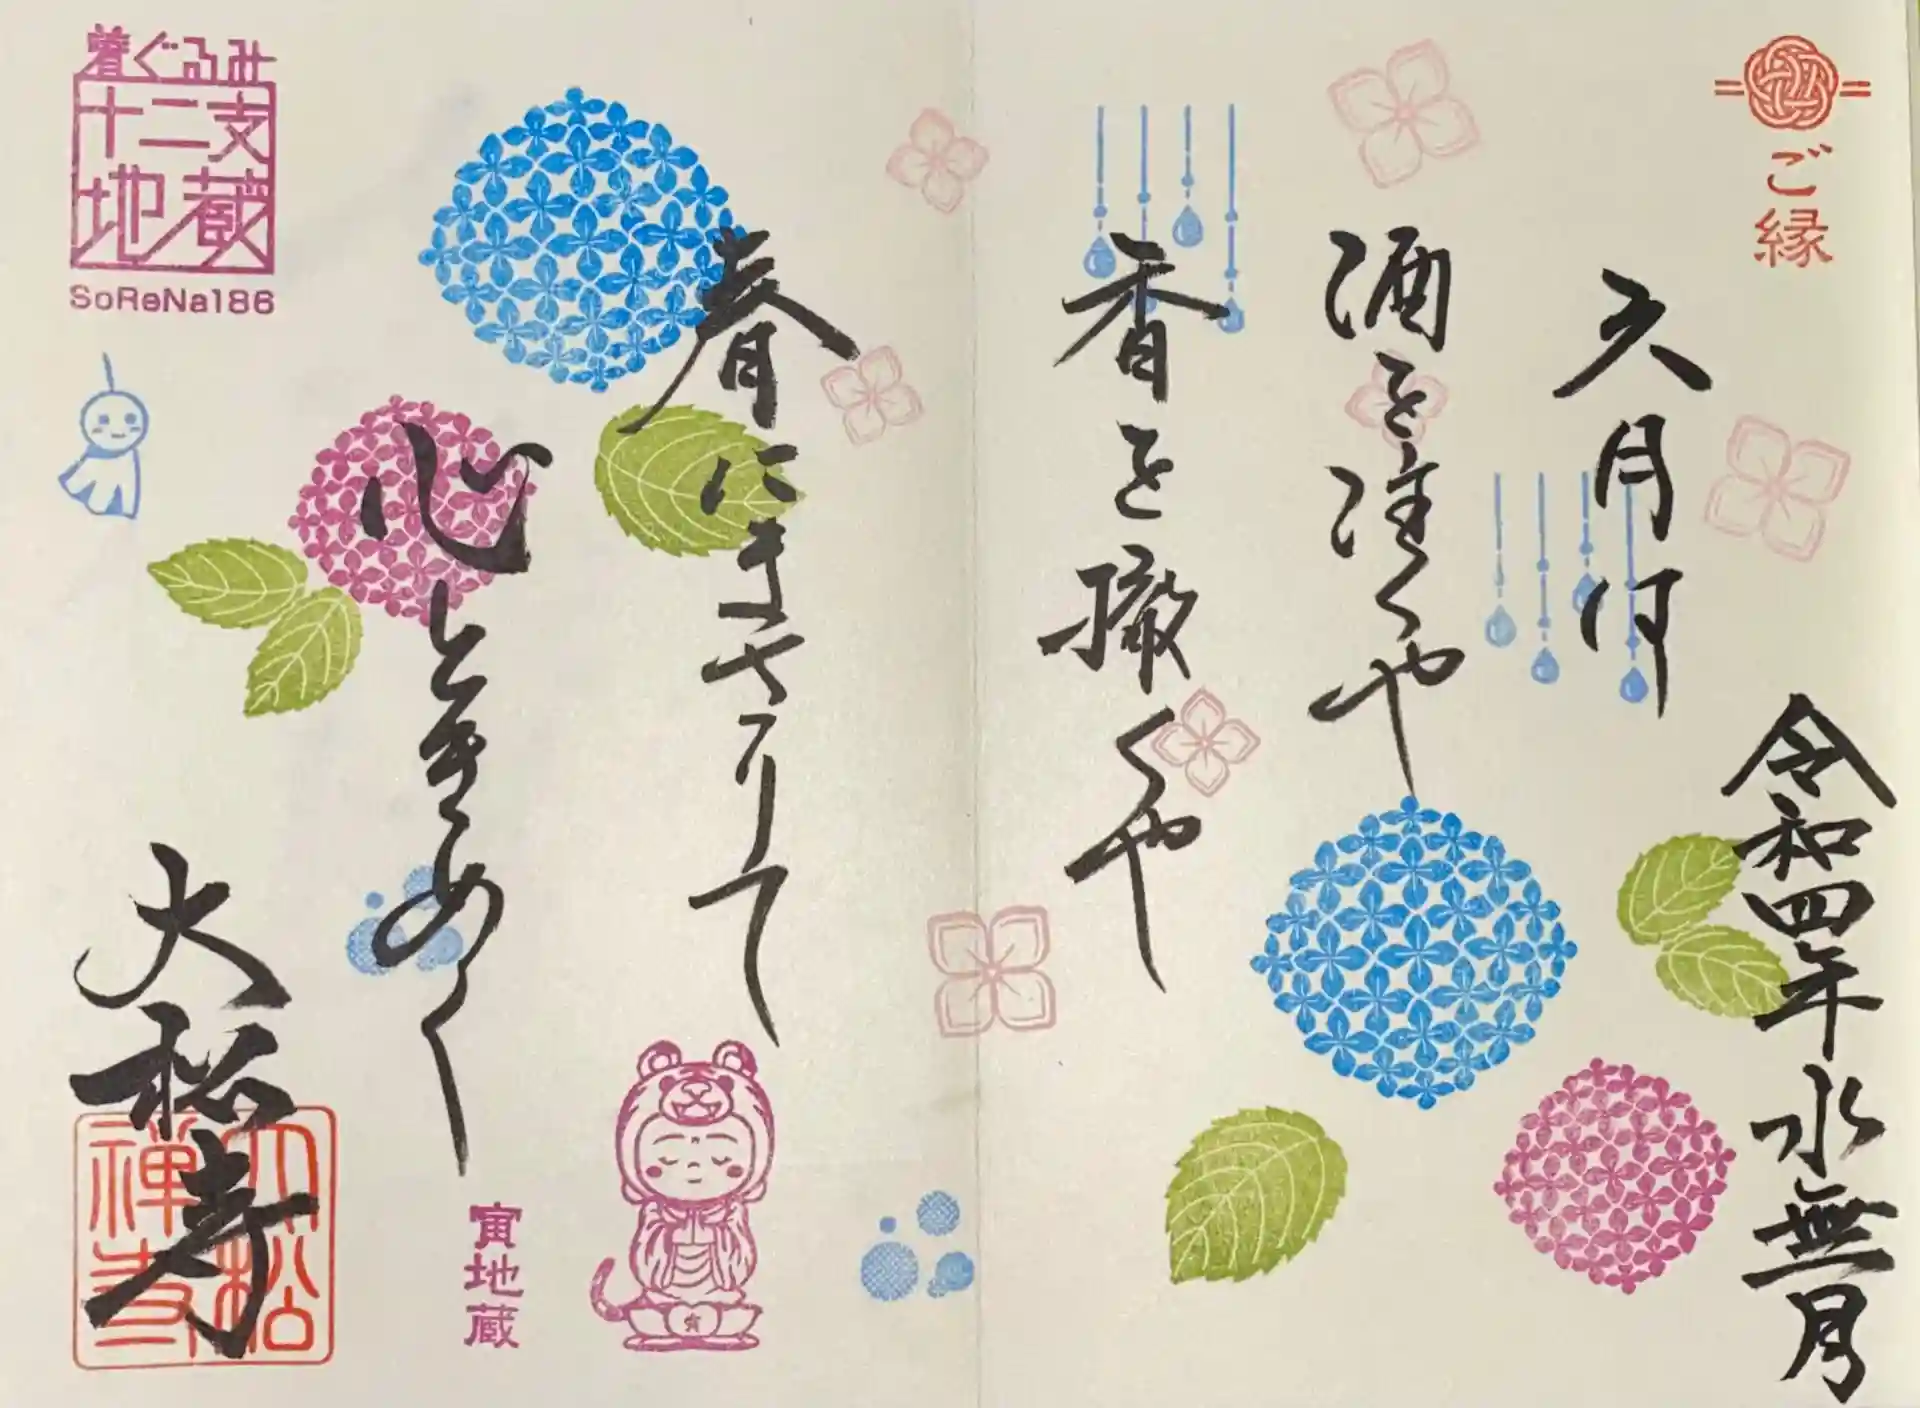 ご縁
令和四年水無月
六月は
酒を注くや
香を撒くや
春にまさりて
心ときめく
大松寺
大松禅寺
寅地蔵
着ぐるみ
十二支
地蔵
SoReNa186